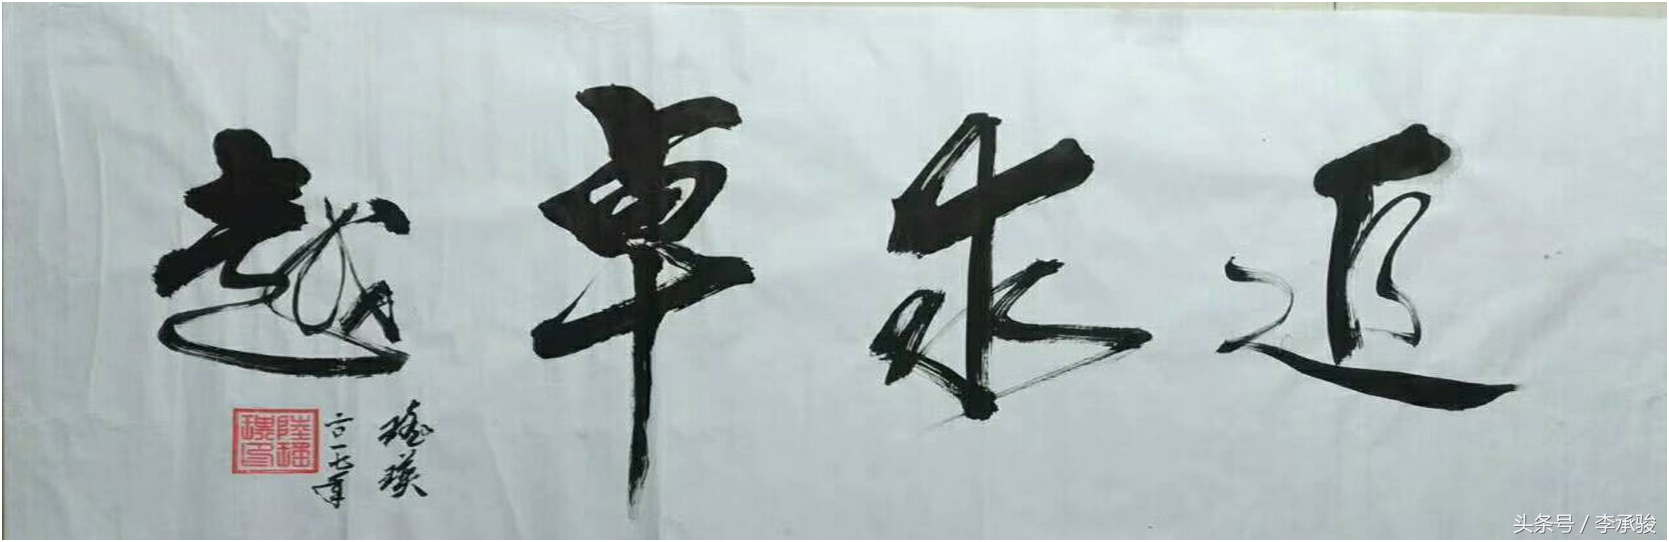 追求卓越
瑤瑛
二〇一七年
头条号 / 李承骏